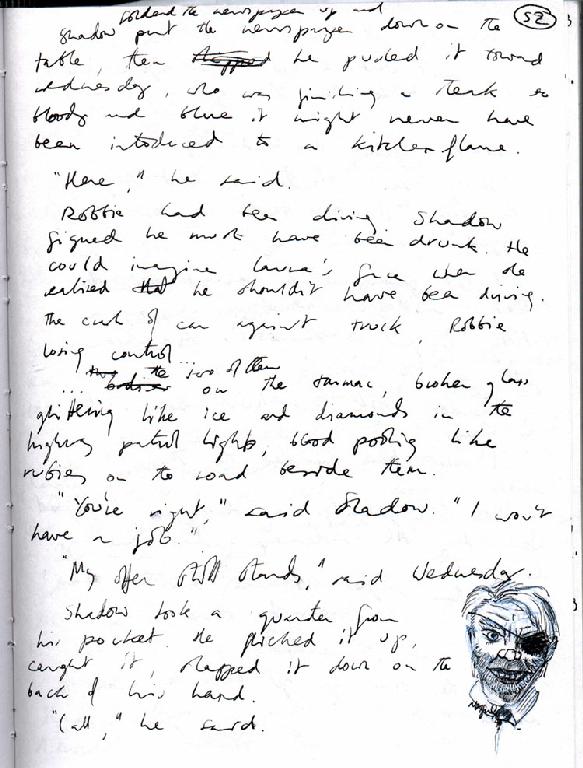 folded the newspaper up and
52
Shadow put the newspaper down on the
table, then slapped he pushed it toward
Wednesday, who was finishing a steak so
bloody and blue it might never have
been introduced to a kitchen flame.
"Here," he said.
Robbie had been driving. Shadow
figured he must have been drunk. He
could imagine Laura's face when she
realised that he shouldn't have been driving.
The crash of car against truck, Robbie
losing control...
... two of them
the on the tarmac, broken glass
glittering like ice and diamonds in the
highway patrol lights, blood pooling like
rubies on the road beside them.
"You're right," said Shadow. "I won't
have a job."
"My offer still stands," said Wednesday.
Shadow took a quarter from
his pocket. He flicked it up,
caught it, slapped it down on the
back of his hand.
"Call," he said.